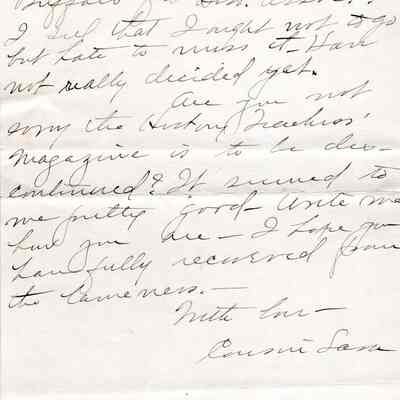 Buffalo
I feel that I ought not to go
but hate to miss it. Have
not really decided yet.
Are you not
sorry the History Teachers'
Magazine is to be dis-
continued? It seemed to
me pretty good - Write me
how you are - I hope you
have fully recovered from
the lameness. -
With love -
Cousin Sara